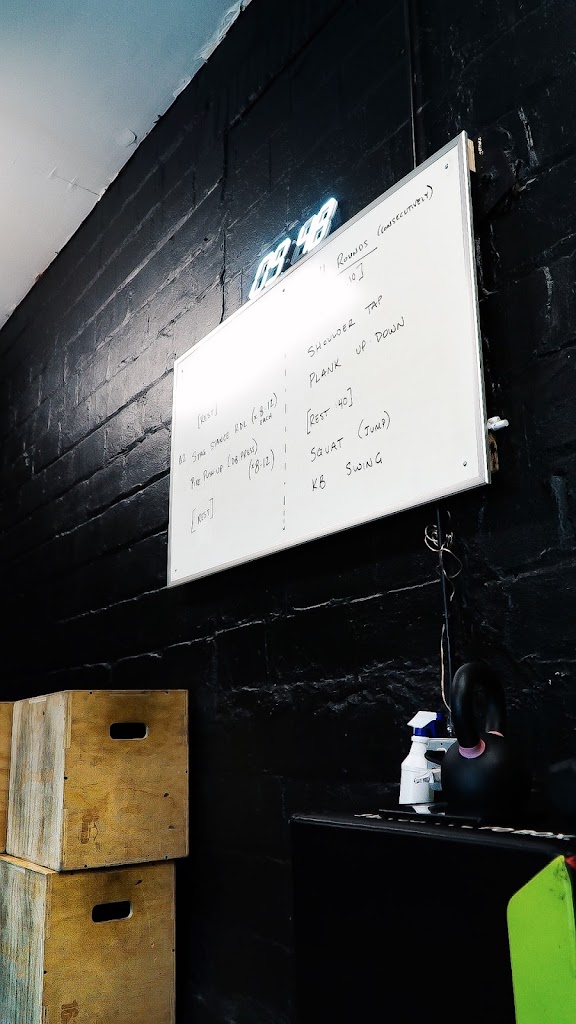 09:48
[REST]
STAG STANCE RDL (x 8-12)
EACH
(DB PRESS)
(x8-12)
[REST]
4 ROUNDS (CONSECUTIVELY)
SHOULDER TAP
PLANK UP DOWN
[REST :40]
SQUAT (JUMP)
KB SWING